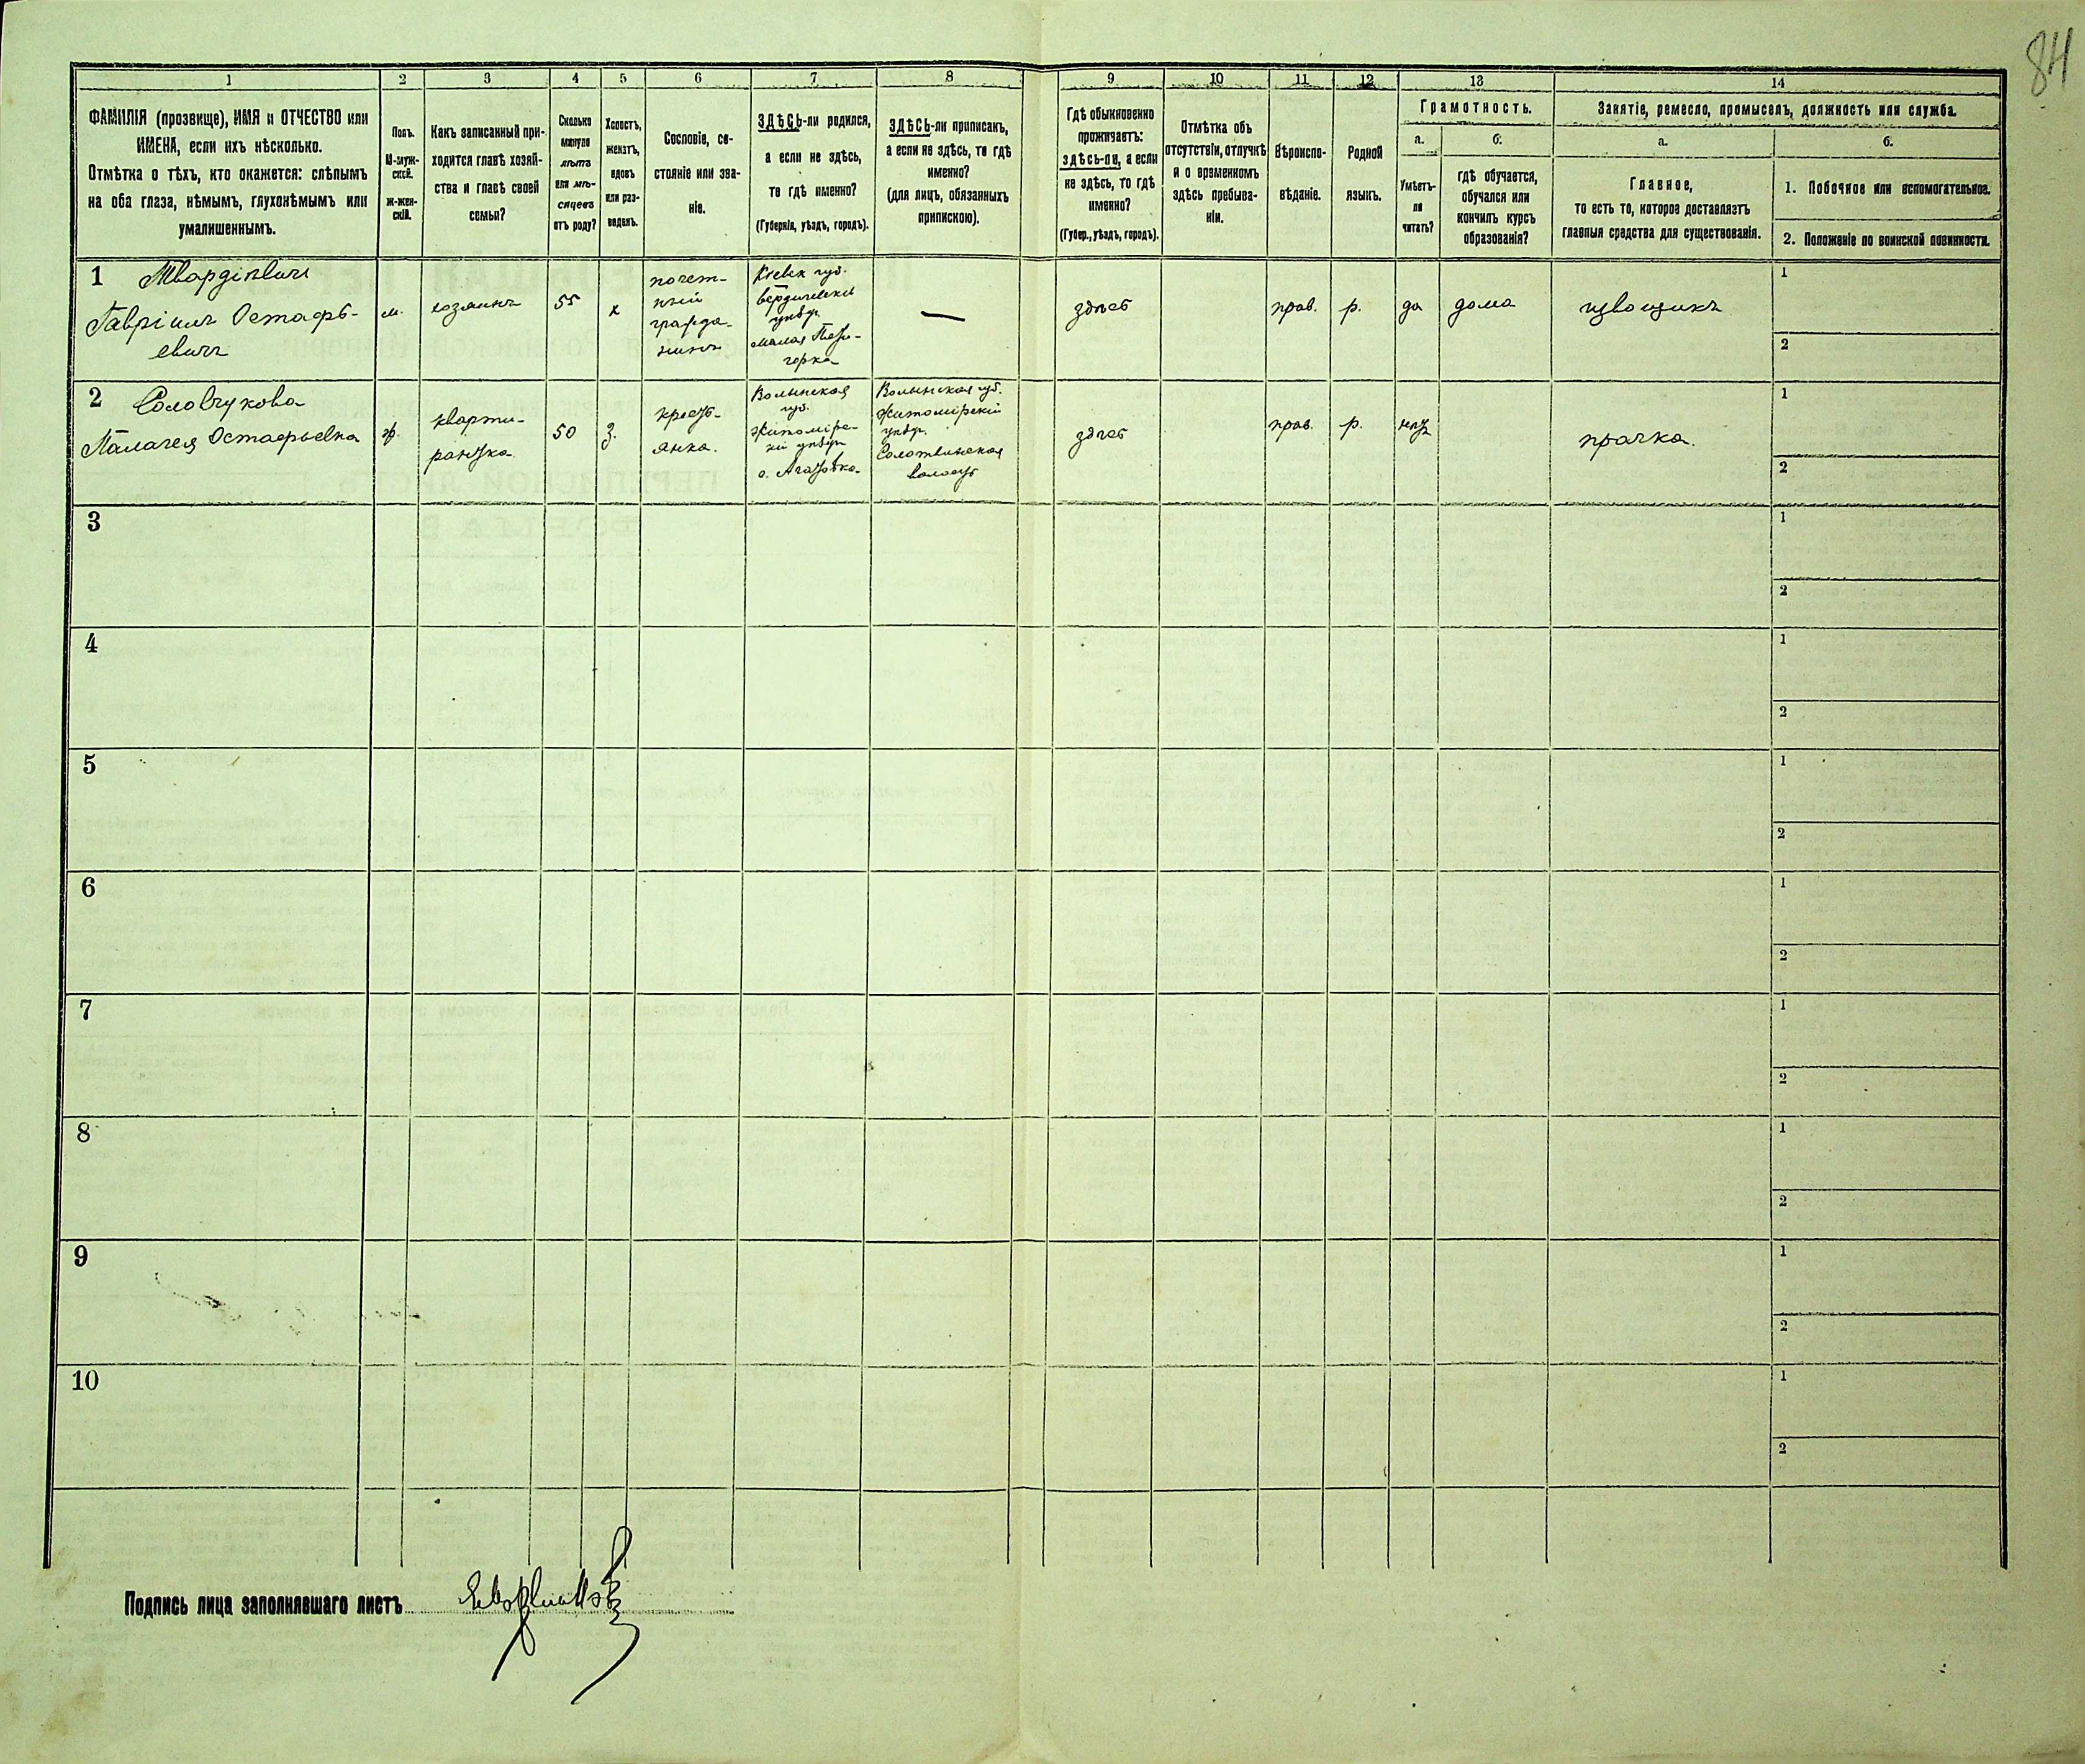 84
1 2 3 4 5 6 7 8 9 10 11 12 13 14
ФАМИЛІЯ (прозвище), ИМЯ и ОТЧЕСТВО или
ИМЕНА, если ихъ нѣсколько.
Отмѣтка о тѣхъ, кто окажется: слѣпымъ
на оба глаза, нѣмымъ, глухонѣмымъ или
умалишеннымъ.
Полъ.
М-муж-
ской.
Ж-жен-
скій.
Какъ записанный при-
ходится главѣ хозяй-
ства и главѣ своей
семьи?
Сколько
минуло
лѣтъ
или мѣ-
сяцевъ
отъ роду?
Холостъ,
женатъ,
вдовъ
или раз-
веденъ.
Сословіе, со-
стояніе или зва-
ніе.
ЗДѢСЬ-ли родился,
а если не здѣсь,
то гдѣ именно?
(Губернія, уѣздъ, городъ).
ЗДѢСЬ-ли приписанъ,
а если не здѣсь, то гдѣ
именно?
(для лицъ, обязанныхъ
припискою).
Гдѣ обыкновенно
проживаетъ:
здѣсь-ли, а если
не здѣсь, то гдѣ
именно?
(Губер., уѣздъ, городъ).
Отмѣтка объ
отсутствіи, отлучкѣ
и о временномъ
здѣсь пребыва-
ніи.
Вѣроиспо-
вѣданіе.
Родной
языкъ.
Грамотность.
а.
Умѣетъ-
ли
читать?
б.
гдѣ обучается,
обучался или
кончилъ курсъ
образованія?
Занятіе, ремесло, промыселъ, должность или служба.
а.
Главное,
то есть то, которое доставляетъ
главныя средства для существованія.
б.
1. Побочное или вспомогательное.
2. Положеніе по воинской повинности.
1 Твардіевичъ
Гавріилъ Остафь-
евичъ
м.
хозяинъ
55
х
почет-
ный
гражда-
нинъ
Кіевск губ.
Бердичевскій
уѣздъ
Малая
горка
—
здѣсь
прав.
р.
да
дома
извощикъ
1
2
2 Соловчукова
Палагея Остафьевна
ж.
кварти-
рантка
50
З.
кресть-
янка.
Волынская
губ.
Житомірс-
кій уѣздъ
с. Агатовка
Волынская губ.
Житомірскій
уѣздъ
Солотвинская
волость
здѣсь
прав.
р.
нѣтъ
прачка.
1
2
3
1
2
4
1
2
5
1
2
6
1
2
7
1
2
8
1
2
9
1
2
10
1
2
Подпись лица заполнявшаго листъ